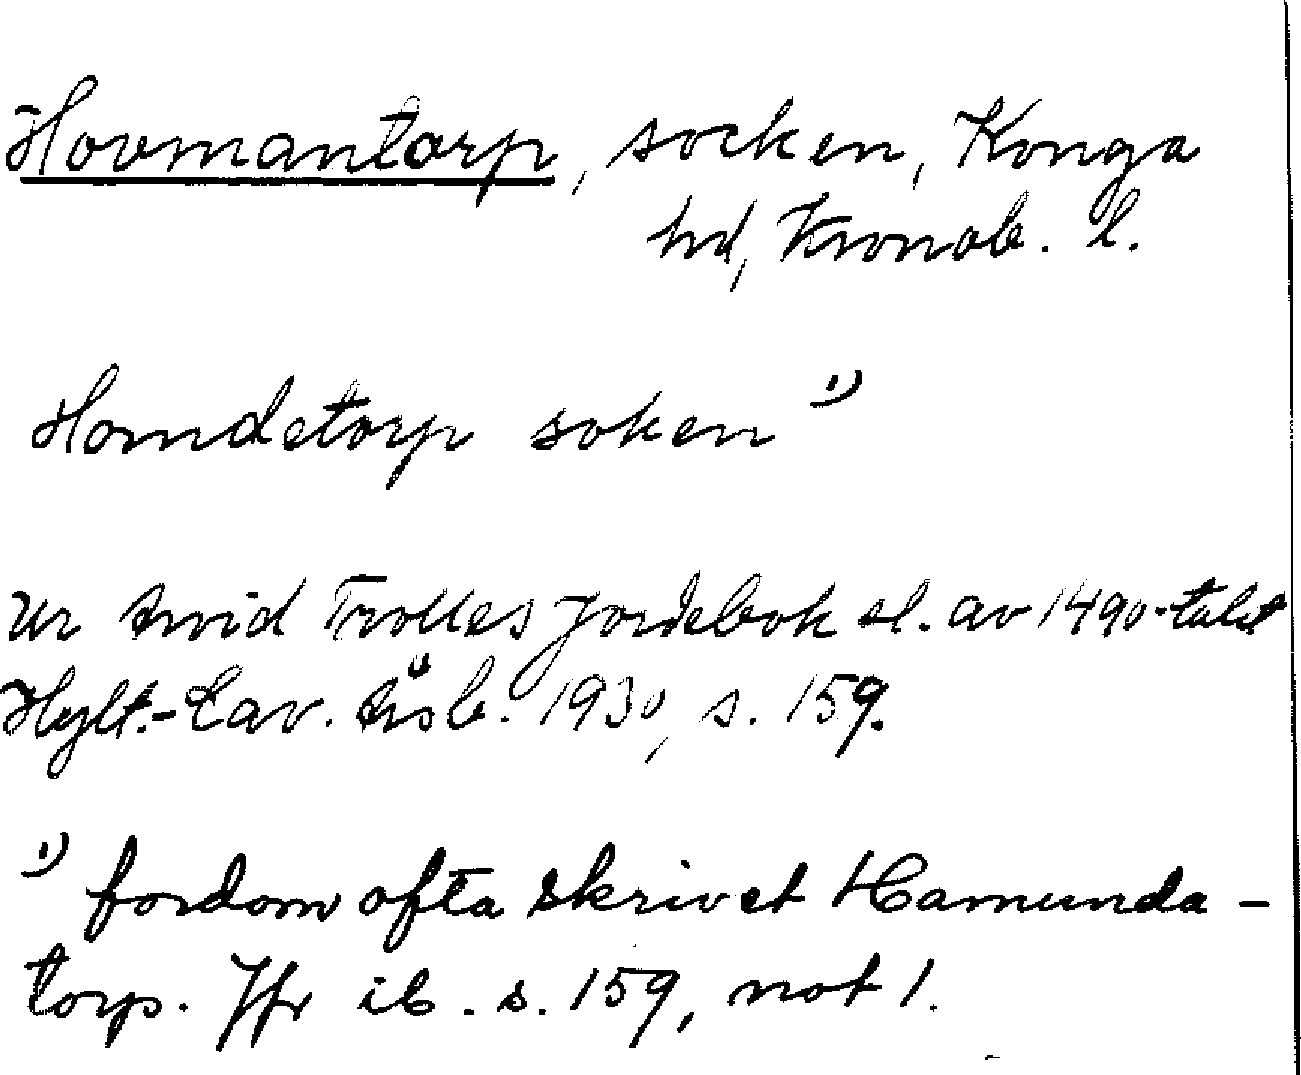 Hovmantorp, socken, Konga
hd, Kronob. l.
Homdetorp soken ¹⁾
Ur Arvid Trolles Jordebok sl. av 1490-talet
Hylt.-Cav. Årsb. 1930, s. 159.
¹⁾ fordom ofta skrivet Hamunda-
torp. Jfr ib. s. 159, not 1.